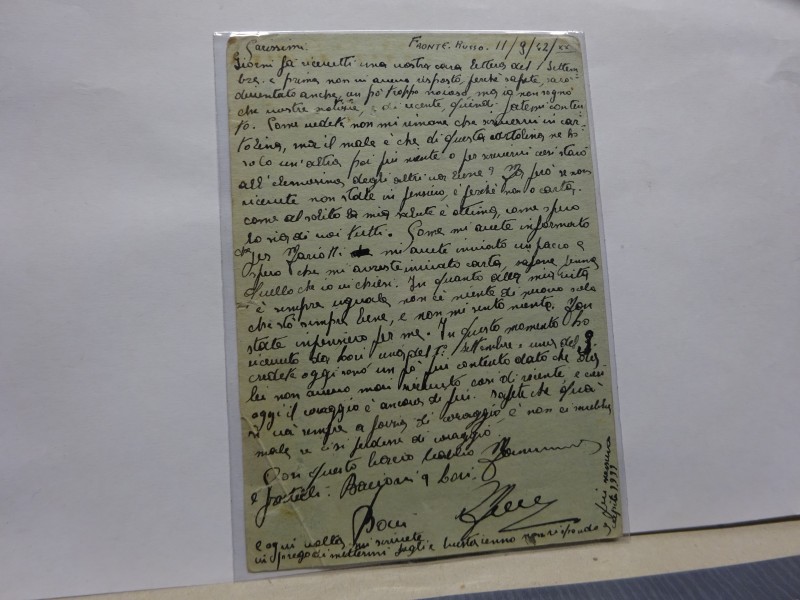 Carissimi. Fronte-Russo. 11/9/42/XX
Giorni fà ricevetti una vostra cara lettera del settem-
bre. e prima non vi avevo risposto, perchè sapete, sarò
diventato anche un pò troppo noioso, ma io non sogno
che vostre notizie, e di ricente, quindi fatemi conten-
to. Come vedete non mi rimane che scrivervi in car-
tolina, ma il male è che di questa cartolina ne ho
solo un'altra poi più niente o per scrivervi
all'elemosina degli altri va bene? Se però se non
ricevete non state in pensiero, è perchè non o carta.
come al solito la mia salute è ottima, come spero
lo sia di voi tutti. Come mi avete informato
che Mariotti mi avete inviato un pacco e
spero che mi avreste inviato carta, sapone, penna
quello che io vi chiesi. In quanto alla mia vita
è sempre uguale non c'è niente di nuovo solo
che stò sempre bene, e non mi sento niente. Non
state in pensiero per me. In questo momento ho
ricevuto da voi una del 1° settembre e una del 3.
credete oggi sono un pò più contento dato che
lei non avevo mai ricevuto così di ricente e
oggi il coraggio è ancora di più. sapete che quà
si và sempre a forza di coraggio e non ci
male se ci si perdesse di coraggio.
Con questo bacio Babbo Mamma
e fratelli. Bacioni a voi.
Baci
e ogni volta mi scrivete
vi prego di mettermi fogli e busta senno non rispondo